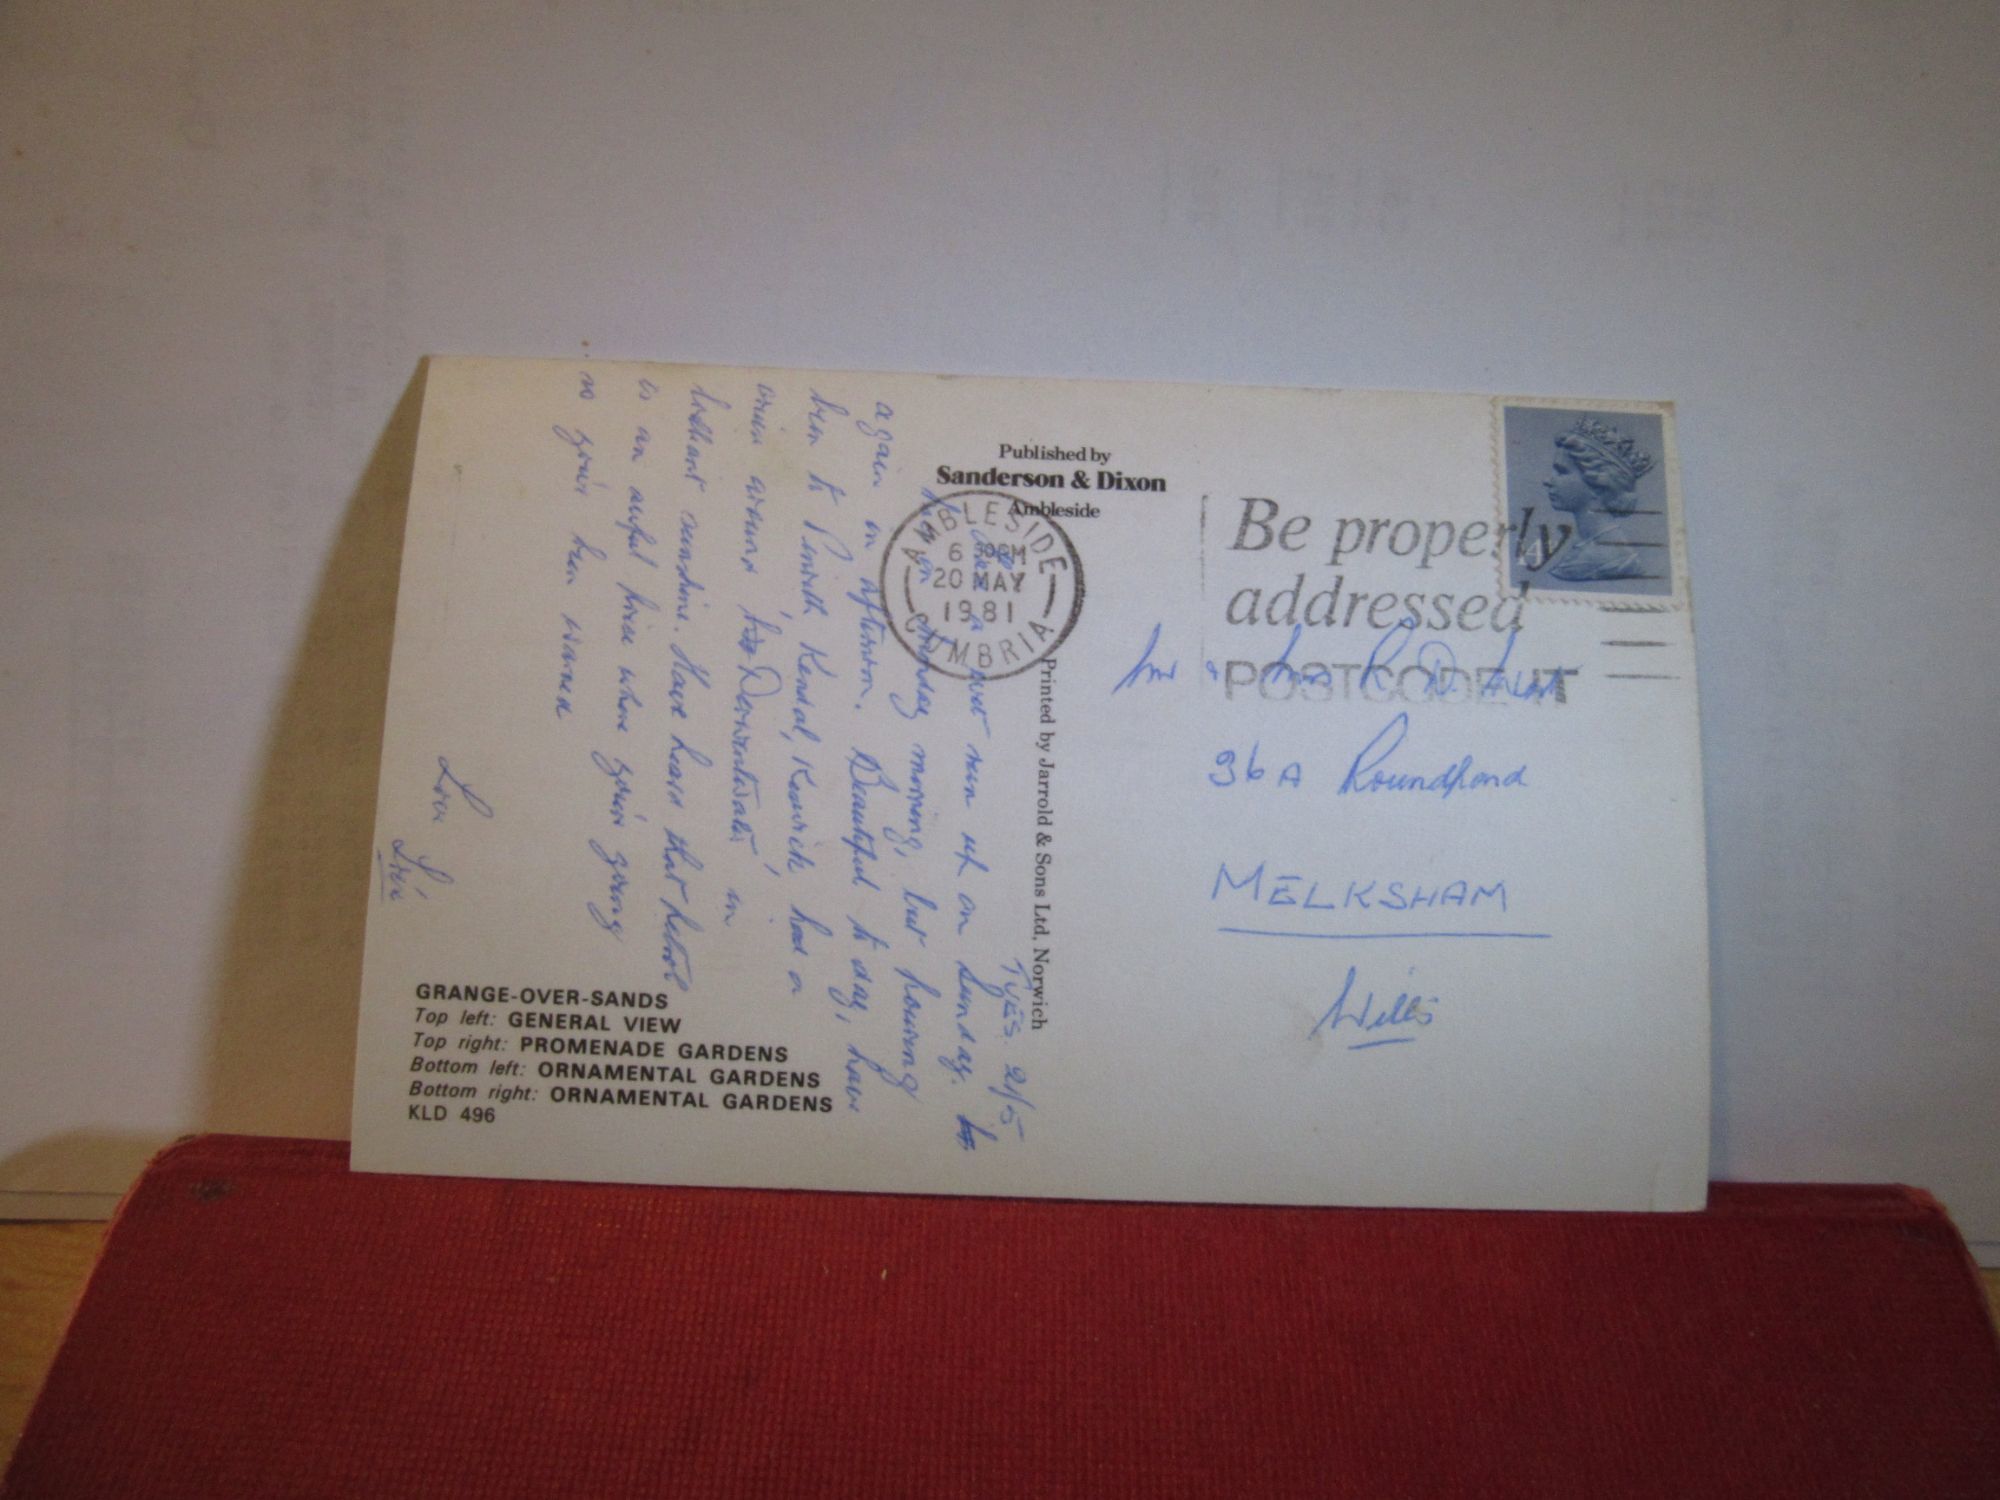 Published by
Sanderson & Dixon
Ambleside
AMBLESIDE
6 30PM
20 MAY
1981
CUMBRIA
Be properly
addressed
POSTCODE IT
TUES 21/5
a wet run up on Sunday.
on Monday morning, but pouring
again in afternoon. Beautiful to day, have
been to Penrith, Kendal, Keswick had a
around Derwentwater in
brilliant sunshine. Have heard that petrol
is an awful price where your going
so you've been warned
Love
Printed by Jarrold & Sons Ltd, Norwich
R. D.
96A Roundpond
MELKSHAM
Wilts
GRANGE-OVER-SANDS
Top left: GENERAL VIEW
Top right: PROMENADE GARDENS
Bottom left: ORNAMENTAL GARDENS
Bottom right: ORNAMENTAL GARDENS
KLD 496